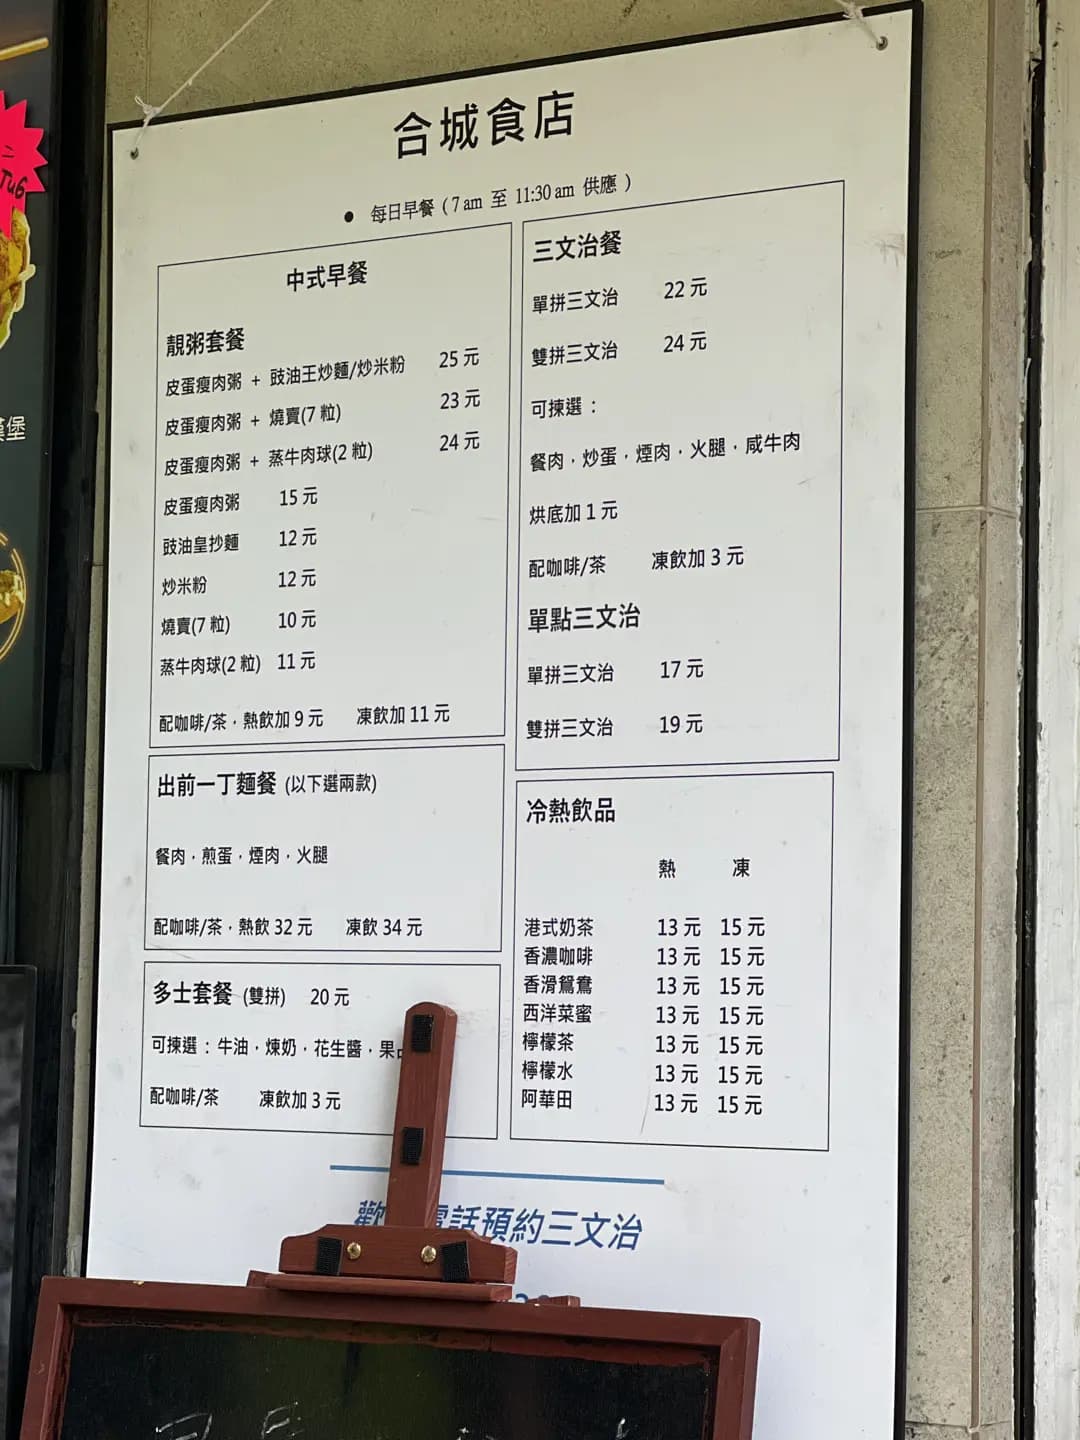 合城食店
● 每日早餐 ( 7 am 至 11:30 am 供應 )
中式早餐
靚粥套餐
皮蛋瘦肉粥 + 豉油王炒麵/炒米粉 25 元
皮蛋瘦肉粥 + 燒賣(7 粒) 23 元
皮蛋瘦肉粥 + 蒸牛肉球(2 粒) 24 元
皮蛋瘦肉粥 15 元
豉油皇抄麵 12 元
炒米粉 12 元
燒賣(7 粒) 10 元
蒸牛肉球(2 粒) 11 元
配咖啡/茶，熱飲加 9 元 凍飲加 11 元
出前一丁麵餐 (以下選兩款)
餐肉，煎蛋，煙肉，火腿
配咖啡/茶，熱飲 32 元 凍飲 34 元
多士套餐 (雙拼) 20 元
可揀選：牛油，煉奶，花生醬，果
配咖啡/茶 凍飲加 3 元
三文治餐
單拼三文治 22 元
雙拼三文治 24 元
可揀選：
餐肉，炒蛋，煙肉，火腿，咸牛肉
烘底加 1 元
配咖啡/茶 凍飲加 3 元
單點三文治
單拼三文治 17 元
雙拼三文治 19 元
冷熱飲品
熱 凍
港式奶茶 13 元 15 元
香濃咖啡 13 元 15 元
香滑鴛鴦 13 元 15 元
西洋菜蜜 13 元 15 元
檸檬茶 13 元 15 元
檸檬水 13 元 15 元
阿華田 13 元 15 元
歡 話預約三文治
堡